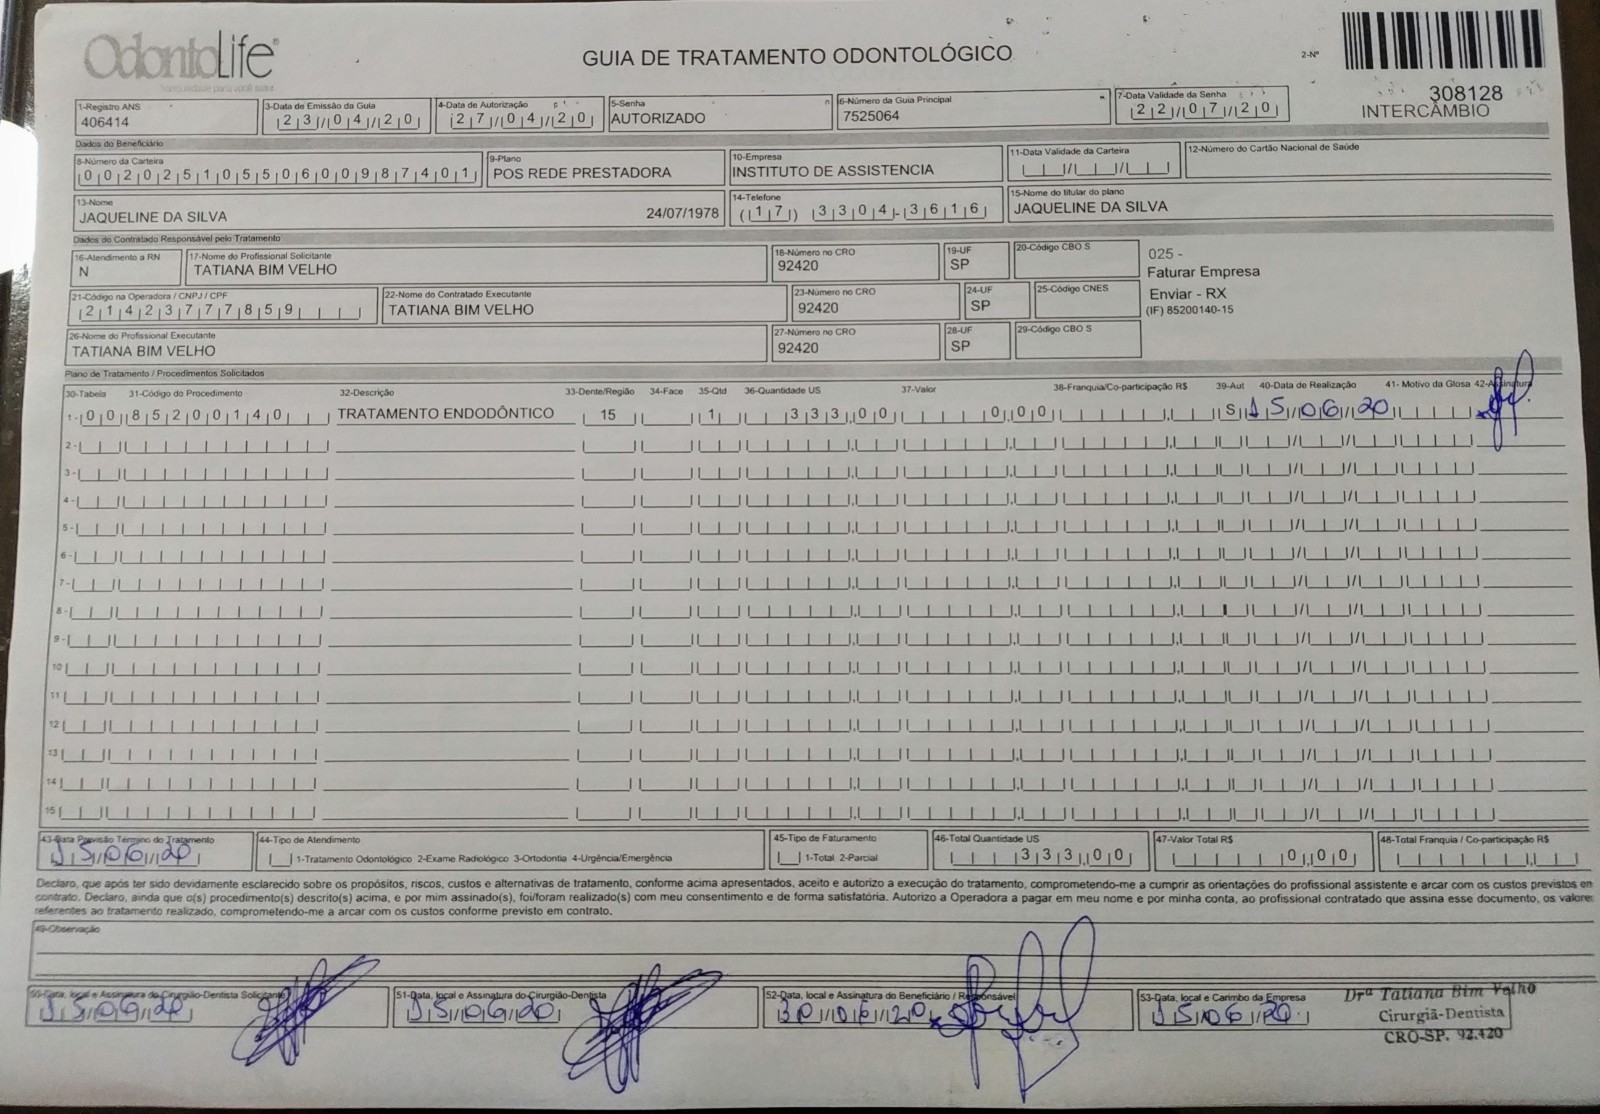 OdontoLife®
GUIA DE TRATAMENTO ODONTOLÓGICO
2-Nº
308128
INTERCÂMBIO
1-Registro ANS
406414
3-Data de Emissão da Guia
23/04/20
4-Data de Autorização
27/04/20
5-Senha
AUTORIZADO
6-Número da Guia Principal
7525064
7-Data Validade da Senha
22/07/20
Dados do Beneficiário
8-Número da Carteira
00202510550600987401
9-Plano
POS REDE PRESTADORA
10-Empresa
INSTITUTO DE ASSISTENCIA
11-Data Validade da Carteira
12-Número do Cartão Nacional de Saúde
13-Nome
JAQUELINE DA SILVA 24/07/1978
14-Telefone
(17) 3304-3616
15-Nome do titular do plano
JAQUELINE DA SILVA
Dados do Contratado Responsável pelo Tratamento
16-Atendimento a RN
N
17-Nome do Profissional Solicitante
TATIANA BIM VELHO
18-Número no CRO
92420
19-UF
SP
20-Código CBO S
025 -
Faturar Empresa
Enviar - RX
(IF) 85200140-15
21-Código na Operadora / CNPJ / CPF
21423777859
22-Nome do Contratado Executante
TATIANA BIM VELHO
23-Número no CRO
92420
24-UF
SP
25-Código CNES
26-Nome do Profissional Executante
TATIANA BIM VELHO
27-Número no CRO
92420
28-UF
SP
29-Código CBO S
Plano de Tratamento / Procedimentos Solicitados
30-Tabela 31-Código do Procedimento 32-Descrição 33-Dente/Região 34-Face 35-Qtd 36-Quantidade US 37-Valor 38-Franquia/Co-participação R$ 39-Aut 40-Data de Realização 41- Motivo da Glosa 42-Assinatura
1- 00 85200140 TRATAMENTO ENDODÔNTICO 15 1 333,00 0,00 S 15/06/20
2-
3-
4-
5-
6-
7-
8-
9-
10
11
12
13
14
15
43-Data Previsão Término do Tratamento
15/06/20
44-Tipo de Atendimento
1-Tratamento Odontológico 2-Exame Radiológico 3-Ortodontia 4-Urgência/Emergência
45-Tipo de Faturamento
1-Total 2-Parcial
46-Total Quantidade US
333,00
47-Valor Total R$
0,00
48-Total Franquia / Co-participação R$
Declaro, que após ter sido devidamente esclarecido sobre os propósitos, riscos, custos e alternativas de tratamento, conforme acima apresentados, aceito e autorizo a execução do tratamento, comprometendo-me a cumprir as orientações do profissional assistente e arcar com os custos previstos em
contrato. Declaro, ainda que o(s) procedimento(s) descrito(s) acima, e por mim assinado(s), foi/foram realizado(s) com meu consentimento e de forma satisfatória. Autorizo a Operadora a pagar em meu nome e por minha conta, ao profissional contratado que assina esse documento, os valores
referentes ao tratamento realizado, comprometendo-me a arcar com os custos conforme previsto em contrato.
49-Observação
50-Data, local e Assinatura do Cirurgião-Dentista Solicitante
15/06/20
51-Data, local e Assinatura do Cirurgião-Dentista
15/06/20
52-Data, local e Assinatura do Beneficiário / Responsável
53-Data, local e Carimbo da Empresa
15/06/20
Drª Tatiana Bim Velho
Cirurgiã-Dentista
CRO-SP. 92.420